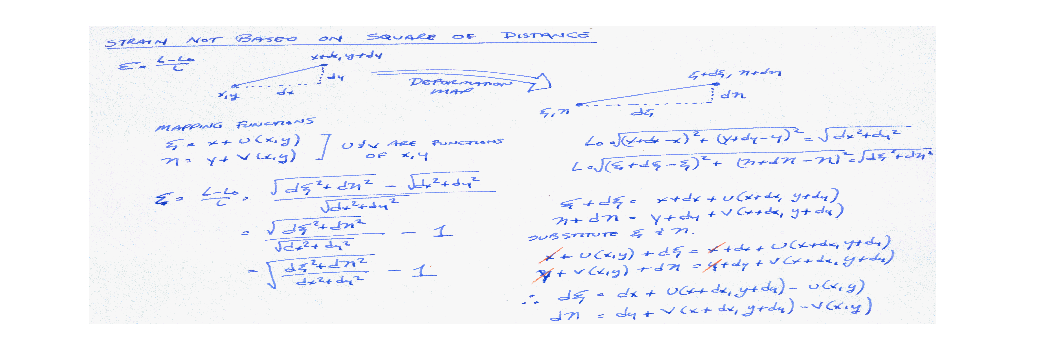 STRAIN NOT BASED ON SQUARE OF DISTANCE
ε = (L-L₀)/L
x,y
dx
dy
x+dx, y+dy
DEFORMATION
MAP
ξ, η
dξ
dη
ξ+dξ, η+dη
MAPPING FUNCTIONS
ξ = x + U(x,y)
η = y + V(x,y)
] U & V ARE FUNCTIONS
OF x,y
ε = (L-L₀)/L = (√(dξ²+dη²) - √(dx²+dy²)) / √(dx²+dy²)
= √(dξ²+dη²) / √(dx²+dy²) - 1
= √((dξ²+dη²)/(dx²+dy²)) - 1
L₀ = √((x+dx-x)² + (y+dy-y)²) = √(dx²+dy²)
L = √((ξ+dξ-ξ)² + (η+dη-η)²) = √(dξ²+dη²)
ξ + dξ = x+dx + U(x+dx, y+dy)
η + dη = y+dy + V(x+dx, y+dy)
SUBSTITUTE ξ & η.
x + U(x,y) + dξ = x+dx + U(x+dx, y+dy)
y + V(x,y) + dη = y+dy + V(x+dx, y+dy)
∴ dξ = dx + U(x+dx, y+dy) - U(x,y)
dη = dy + V(x+dx, y+dy) - V(x,y)